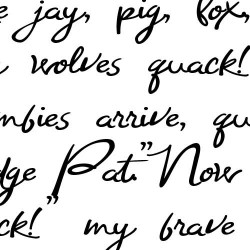 e jay, pig, fox,
wolves quack!
mbies arrive, qu
dge Pat." Now
ck!" my brave